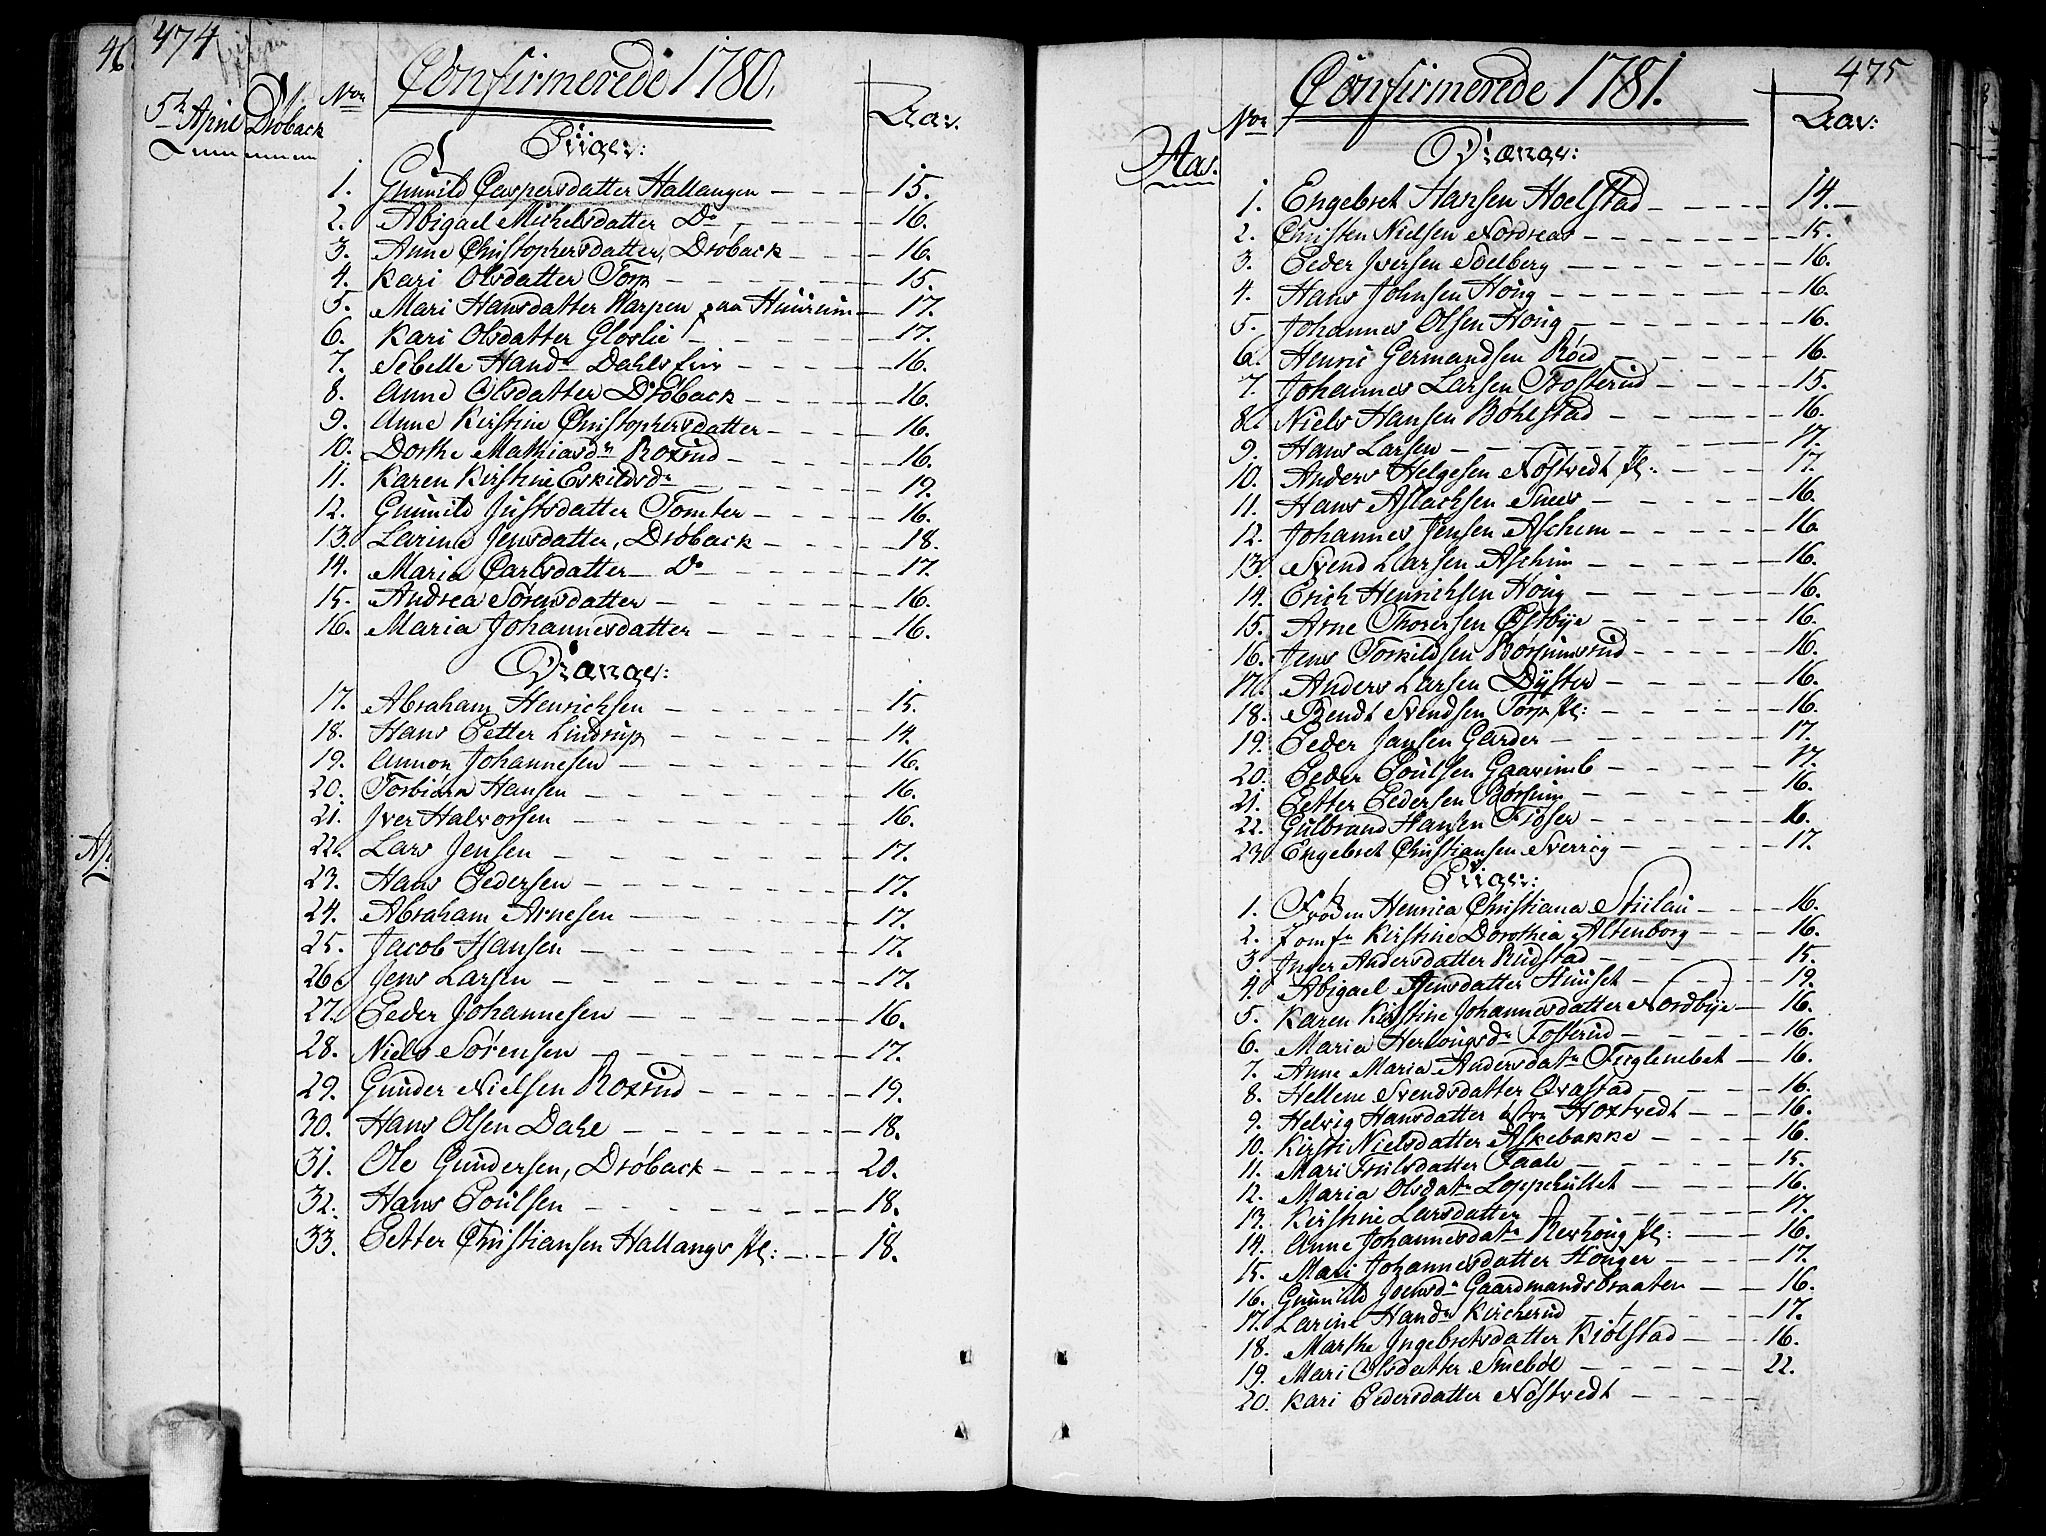 474
Confirmerede 1780.
5te April Drøback
No.
Aar.
Piiger:
1. Gunnild Caspersdatter Hallangen 15.
2. Abigael Michelsdatter Do 16.
3. Anne Christophersdatter, Drøback 16.
4. Kari Olsdatter Torp 15.
5. Mari Hansdatter Warpen paa Huurum 17.
6. Kari Olsdatter Gloslie 17.
7. Sebelle Handr Dahls Eier 16.
8. Anne Olsdatter Drøback 16.
9. Anne Kirstine Christophersdatter 16.
10. Dorthe Mathiasdr Roxrud 16.
11. Karen Kirstine Eskildsdr 19.
12. Gunnild Justsdatter Tomter 16.
13. Larine Jensdatter, Drøback 18.
14. Maria Carlsdatter Do 17.
15. Andrea Sørensdatter 16.
16. Maria Johannesdatter 16.
Drænge:
17. Abraham Henrichsen 15.
18. Hans Petter Lindrup 14.
19. Annon Johannesen 16.
20. Torbiørn Hansen 16.
21. Iver Halvorsen 16.
22. Lars Jensen 17.
23. Hans Pedersen 17.
24. Abraham Arnesen 17.
25. Jacob Hansen 17.
26. Jens Larsen 17.
27. Peder Johannesen 16.
28. Niels Sørensen 17.
29. Gunder Nielsen Roxrud 19.
30. Hans Olsen Dahl 18.
31. Ole Gundersen, Drøback 20.
32. Hans Poulsen 18.
33. Petter Christiansen Hallangs Pl: 18.
475
Confirmerede 1781.
Aas.
No.
Aar:
Drænge:
1. Engebret Hansen Hoelstad 14.
2. Christen Nielsen Nordreas 15.
3. Peder Iversen Solberg 16.
4. Hans Johnsen Houg 16.
5. Johannes Olsen Houg 16.
6. Henric Germandsen Røed 16.
7. Johannes Larsen Trosterud 15.
8. Niels Hansen Bølestad 16.
9. Hans Larsen 17.
10. Anders Helgesen Nøstvedt Pl: 17.
11. Hans Aslachsen Snees 16.
12. Johannes Jensen Aschem 16.
13. Svend Larsen Aschim 16.
14. Erich Henrichsen Houg 16.
15. Arne Thoresen Østbye 16.
16. Jens Torkildsen Børsumsrud 16.
17. Anders Larsen Dyster 16.
18. Bendt Svendsen Torp Pl: 16.
19. Peder Jansen Garder 17.
20. Peder Poulsen Gaarumb 17.
21. Petter Pedersen Børsum 16.
22. Gulbrand Hansen Fioser 16.
23. Engebret Christiansen Sverrig 17.
Piiger:
1. Frøken Henrica Christiana Stülau 16.
2. Jomfr Kirstine Dorothea Altenborg 16.
3. Inger Andersdatter Rudstad 15.
4. Abigael Jensdatter Huuset 19.
5. Karen Kirstine Johannesdatter Nordbye 16.
6. Maria Herlougsdr Fosterud 16.
7. Anne Maria Andersdatr Fuglenebet 16.
8. Hellene Svendsdatter Qvastad 16.
9. Helvig Hansdatter østre Hoxtvedt 16.
10. Kirsti Nielsdatter Askebakke 16.
11. Mari Truls datter Faale 15.
12. Maria Olsdatr Loppehullet 16.
13. Kirstine Larsdatter 17.
14. Anne Johannesdatr Revhoug Pl: 16.
15. Mari Johannesdatter Houger 17.
16. Gunnild Joensdr Gaardmandsbraaten 16.
17. Larine Handr Kircherud 17.
18. Marthe Ingebretsdatter Kiølstad 16.
19. Mari Olsdatter Smebøl 22.
20. Kari Pedersdatter Nøstvedt